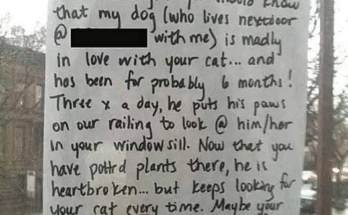 that my dog (who lives nextdoor
@ with me) is madly
in love with your cat... and
has been for probably 6 months!
Three x a day, he puts his paws
on our railing to look @ him/her
in your window sill. Now that you
have pottrd plants there, he is
heartbroken... but keeps looking for
your cat every time. Maybe your